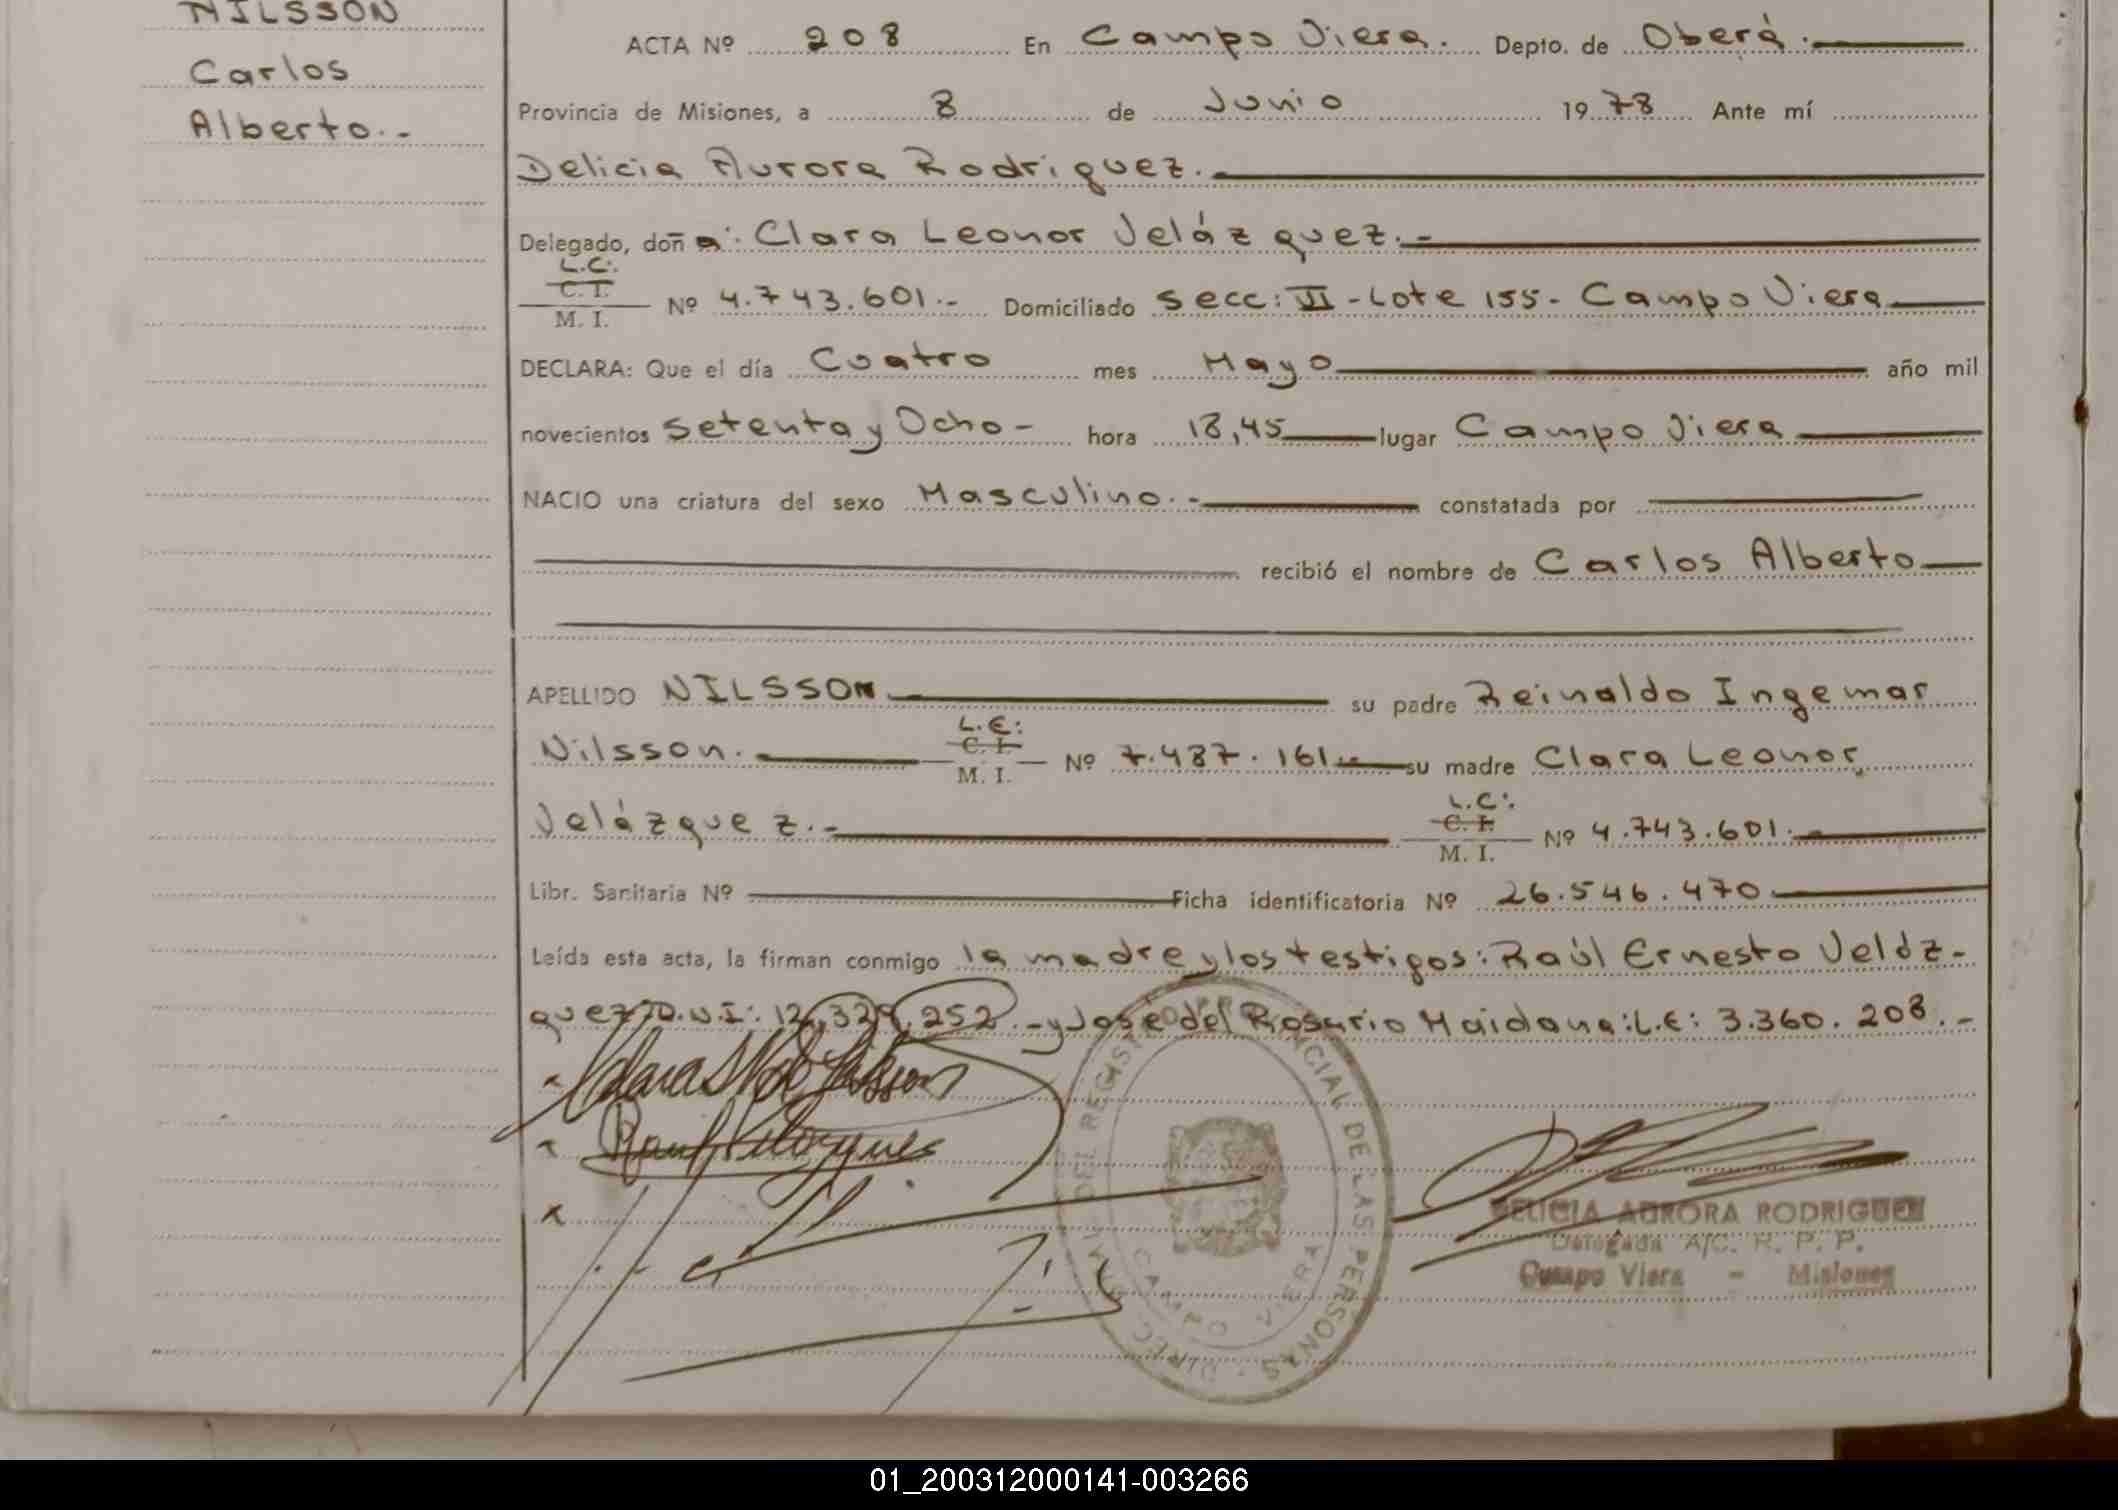 NILSSON
Carlos
Alberto.-
ACTA Nº 208 En Campo Viera. Depto. de Oberá.
Provincia de Misiones, a 8 de Junio 1978 Ante mí
Delicia Aurora Rodriguez.
Delegado, doña: Clara Leonor Velázquez.-
L.C.:
C. I.
M. I.
Nº 4.743.601.- Domiciliado Secc: VI - Lote 155 - Campo Viera
DECLARA: Que el día Cuatro mes Mayo año mil
novecientos Setenta y Ocho - hora 18,45 lugar Campo Viera
NACIO una criatura del sexo Masculino.- constatada por
recibió el nombre de Carlos Alberto
APELLIDO NILSSON su padre Reinaldo Ingemar
L.E:
C. I.
Nilsson. Nº 7.487.161.- su madre Clara Leonor
M. I.
L.C:
C. I.
Velázquez.- Nº 4.743.601.
M. I.
Libr. Sanitaria Nº Ficha identificatoria Nº 26.546.470
Leída esta acta, la firman conmigo la madre y los testigos: Raúl Ernesto Veláz-
quez D.N.I: 12.329.252.- y José del Rosario Maidana: L.E: 3.360.208.-
DIREC. DEL REGISTRO PROVINCIAL DE LAS PERSONAS
CAMPO VIERA
DELICIA AURORA RODRIGUEZ
Delegada A/C. R. P. P.
Campo Viera - Misiones
01_200312000141-003266